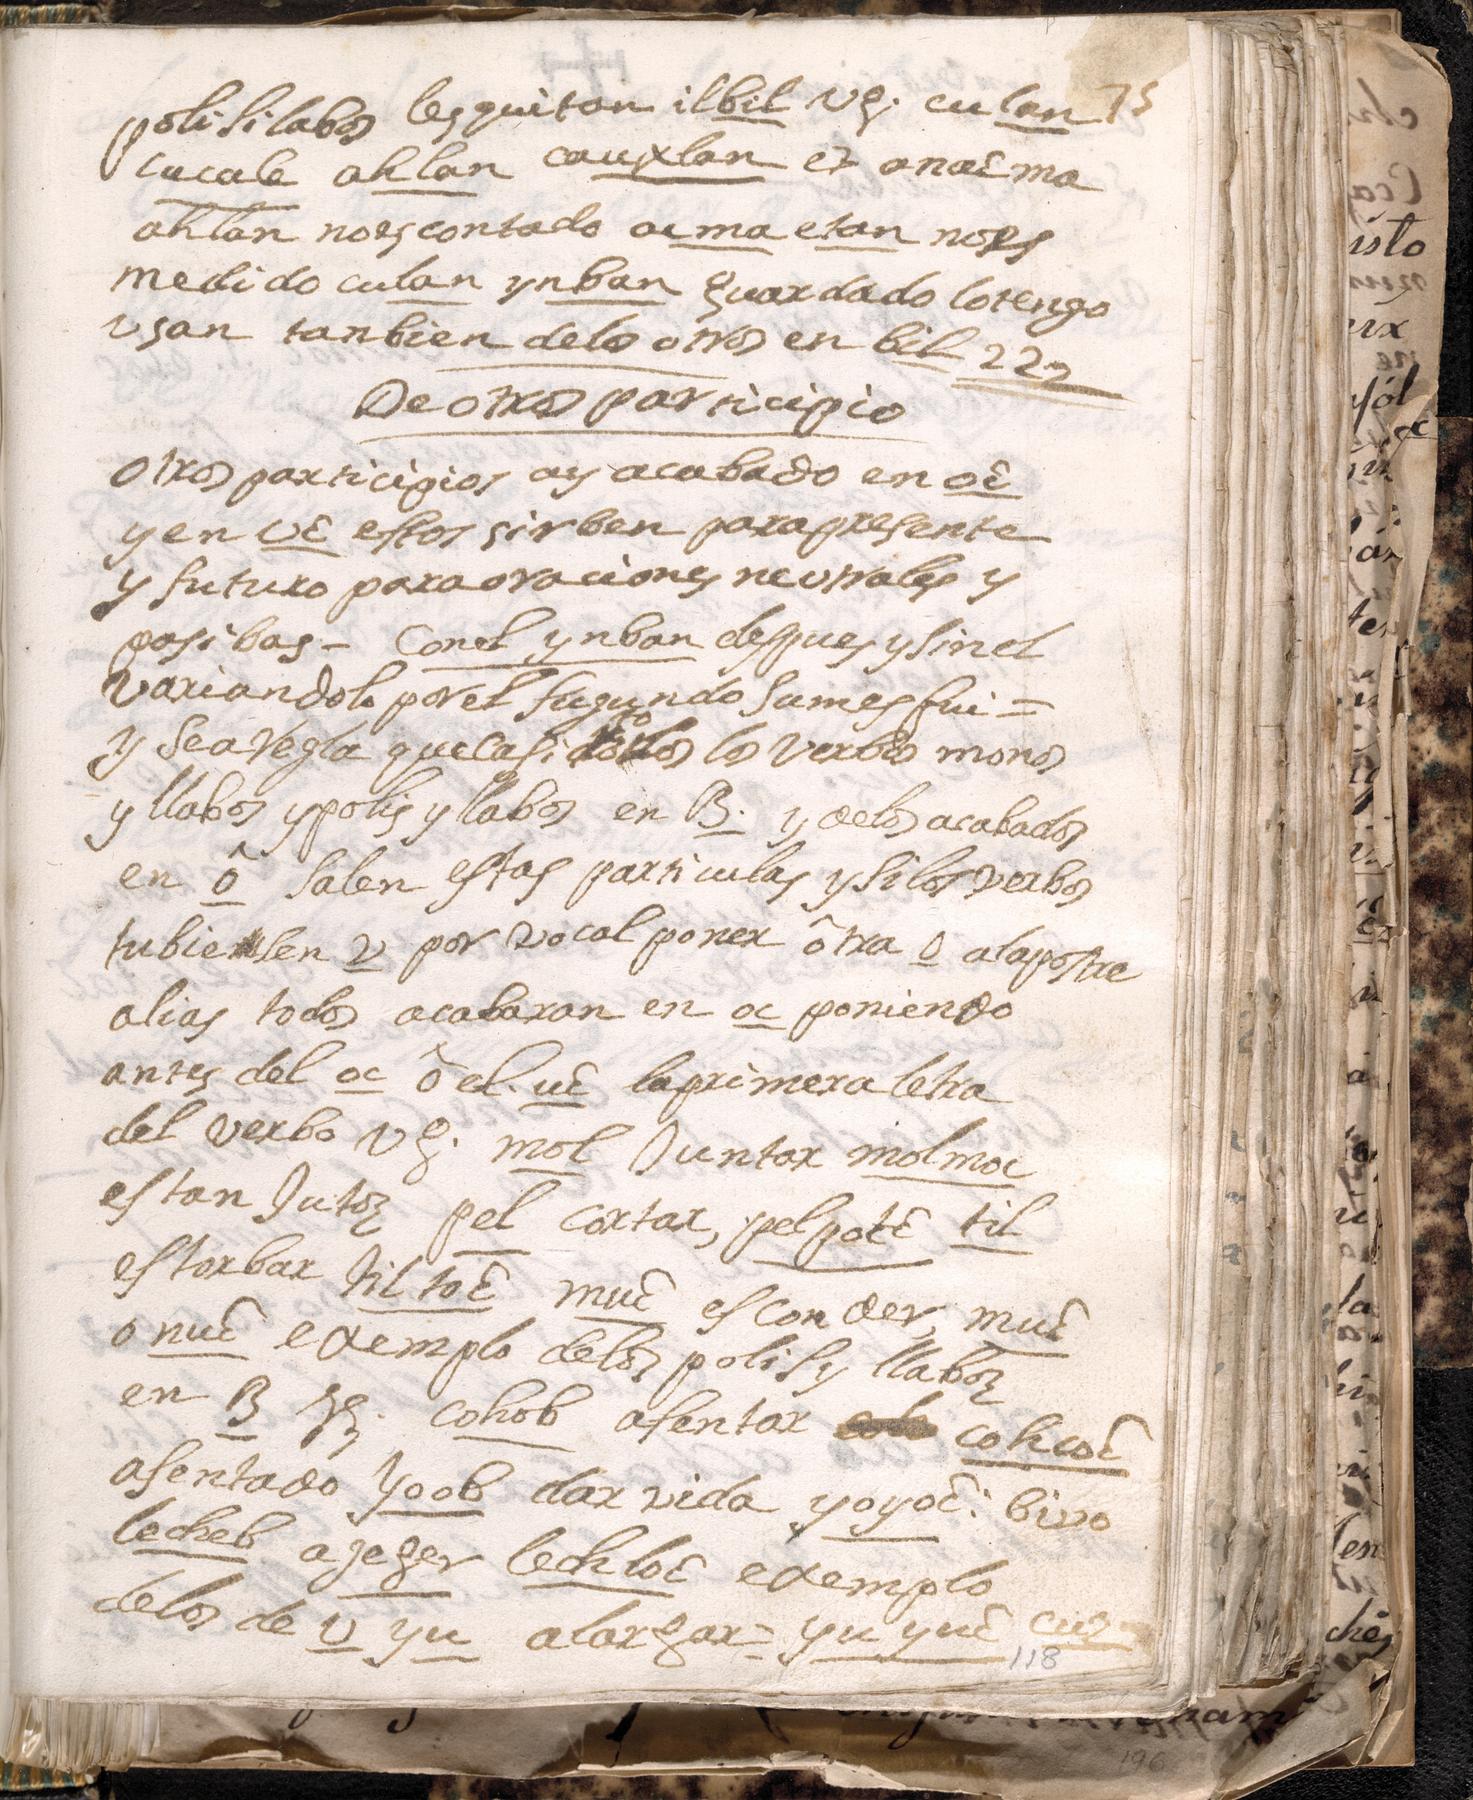 polisilabos les quitan il bil vg. culan 75
cucale ahlan cauxlan et anacma
ahlan no es contado acma etan no es
medido culan ynban guardado lo tengo
vsan tanbien delos otros en bil 222
De otros participio
otros participios ay acabado en oc
y en vc estos sirben para presente
y futuro para oraciones neutrales y
pasibas - Con el ynban despues y sin el
variandole por el sugundo sumes fui =
y sea regla que casi todos los verbos monos
yllabos y polisyllabos en B. y delos acabados
en ô salen estas particulas y si los verbos
tubiesen v por vocal poner ôtra v ala postre
alias todos acabaran en oc poniendo
antes del oc ô el uc la primera letra
del verbo vg. mol Juntar molmoc
estan Jutos pel cortar, pelpoc til
estorbar tiltoc muc esconder, muc
o nuc exemplo delos polisyllabos
en B vg. cohob asentar cohcoc
asentado yoob dar vida yoyoc: bivo
lecheb ageger lechloc exemplo
delos de v yu alargar = yuyuc cuz
118
196